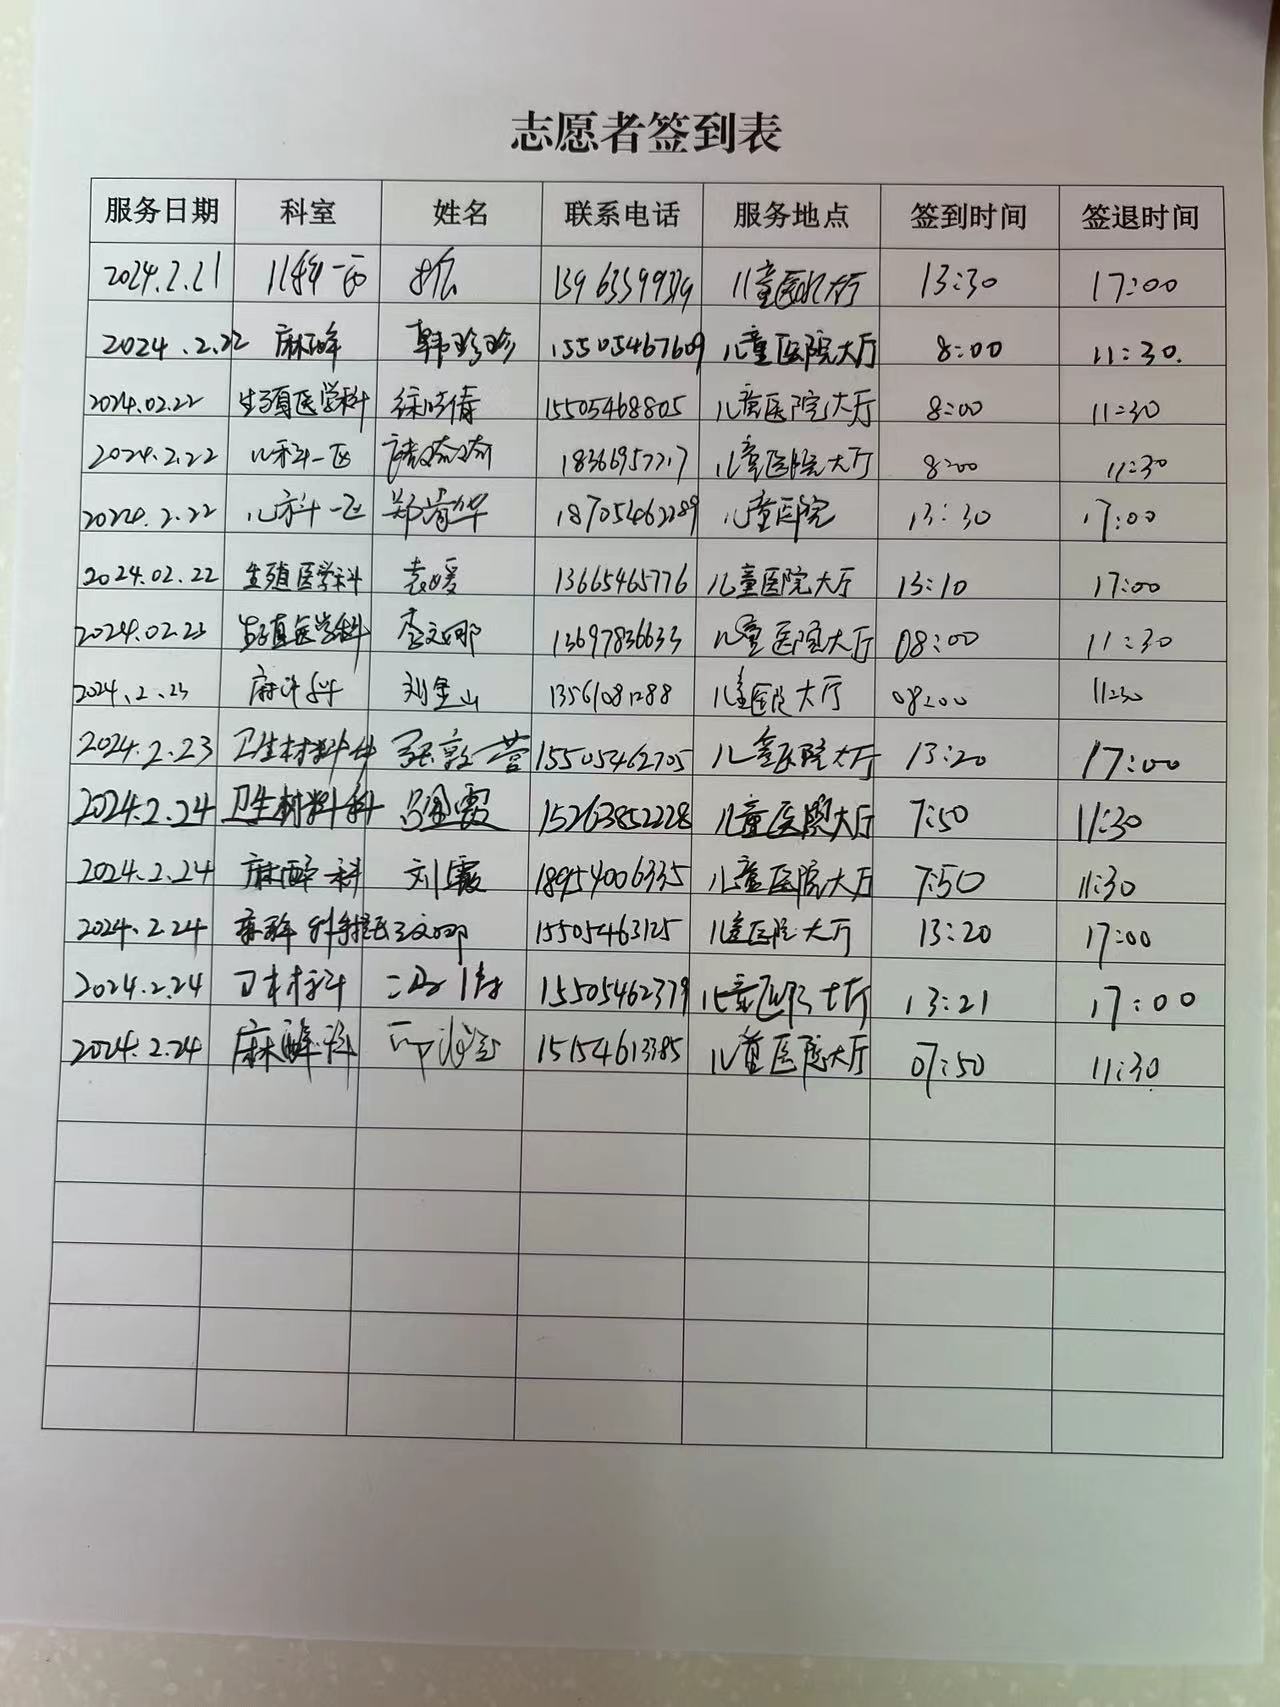 志愿者签到表
服务日期 科室 姓名 联系电话 服务地点 签到时间 签退时间
2024.2.21 儿科一区 儿童医院大厅 13:30 17:00
2024.2.22 麻醉 韩珍珍 15505467609 儿童医院大厅 8:00 11:30.
2024.02.22 生殖医学科 徐晓倩 15505468805 儿童医院大厅 8:00 11:30
2024.2.22 儿科一区 儿童医院大厅 8:00 11:30
2024.2.22 儿科一区 18705462289 儿童医院 13:30 17:00
2024.02.22 生殖医学科 袁媛 13665465776 儿童医院大厅 13:10 17:00
2024.02.23 生殖医学科 李文娜 13697836633 儿童医院大厅 08:00 11:30
2024.2.23 刘金山 13561081288 儿童医院大厅 08:00 11:30
2024.2.23 卫生材料科 15505462705 儿童医院大厅 13:20 17:00
2024.2.24 卫生材料科 15263852228 儿童医院大厅 7:50 11:30
2024.2.24 麻醉科 刘霞 18954006335 儿童医院大厅 7:50 11:30
2024.2.24 15505463125 儿童医院大厅 13:20 17:00
2024.2.24 卫材科 15505462379 儿童医院大厅 13:21 17:00
2024.2.24 麻醉科 15154613385 儿童医院大厅 07:50 11:30